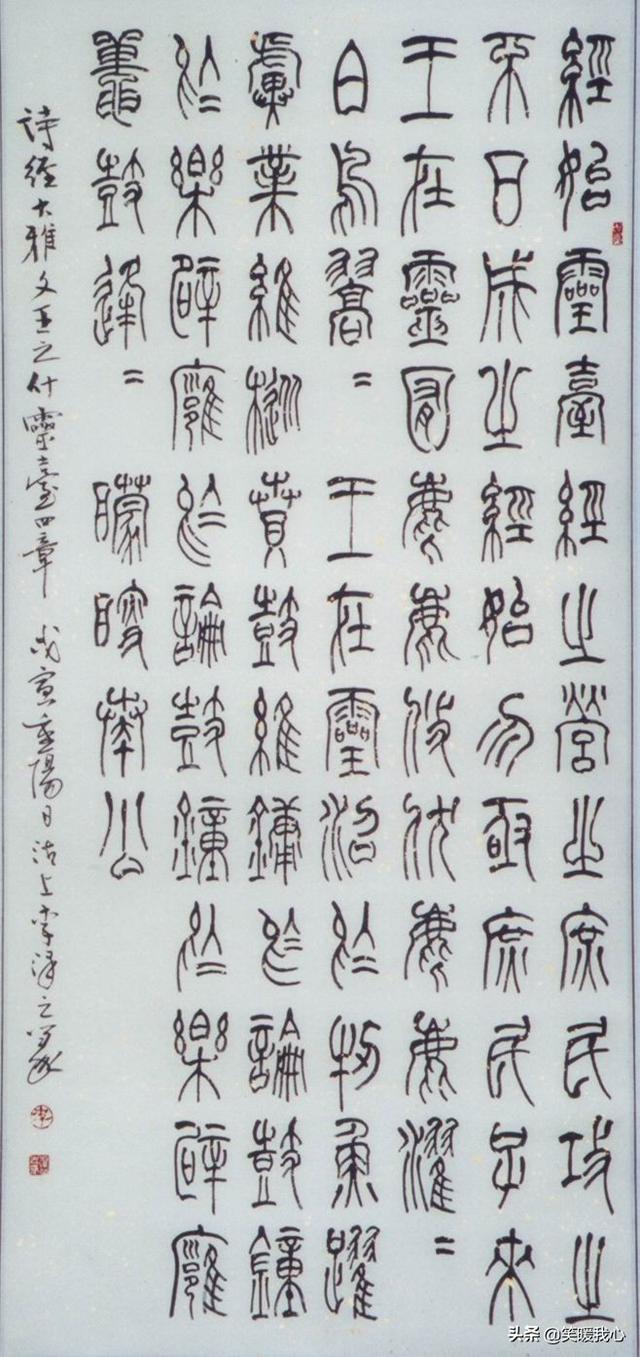 經始靈臺經之營之庶民攻之
不日成之經始勿亟庶民子來
王在靈囿麀鹿攸伏麀鹿濯=
白鳥翯=王在靈沼於牣魚躍
虡業維樅賁鼓維鏞於論鼓鐘
於樂辟廱於論鼓鐘於樂辟廱
鼉鼓逢=矇瞍奏公
詩經大雅文王之什靈臺四章 戊寅重陽日沽上李澤之篆
头条 @笑暖我心